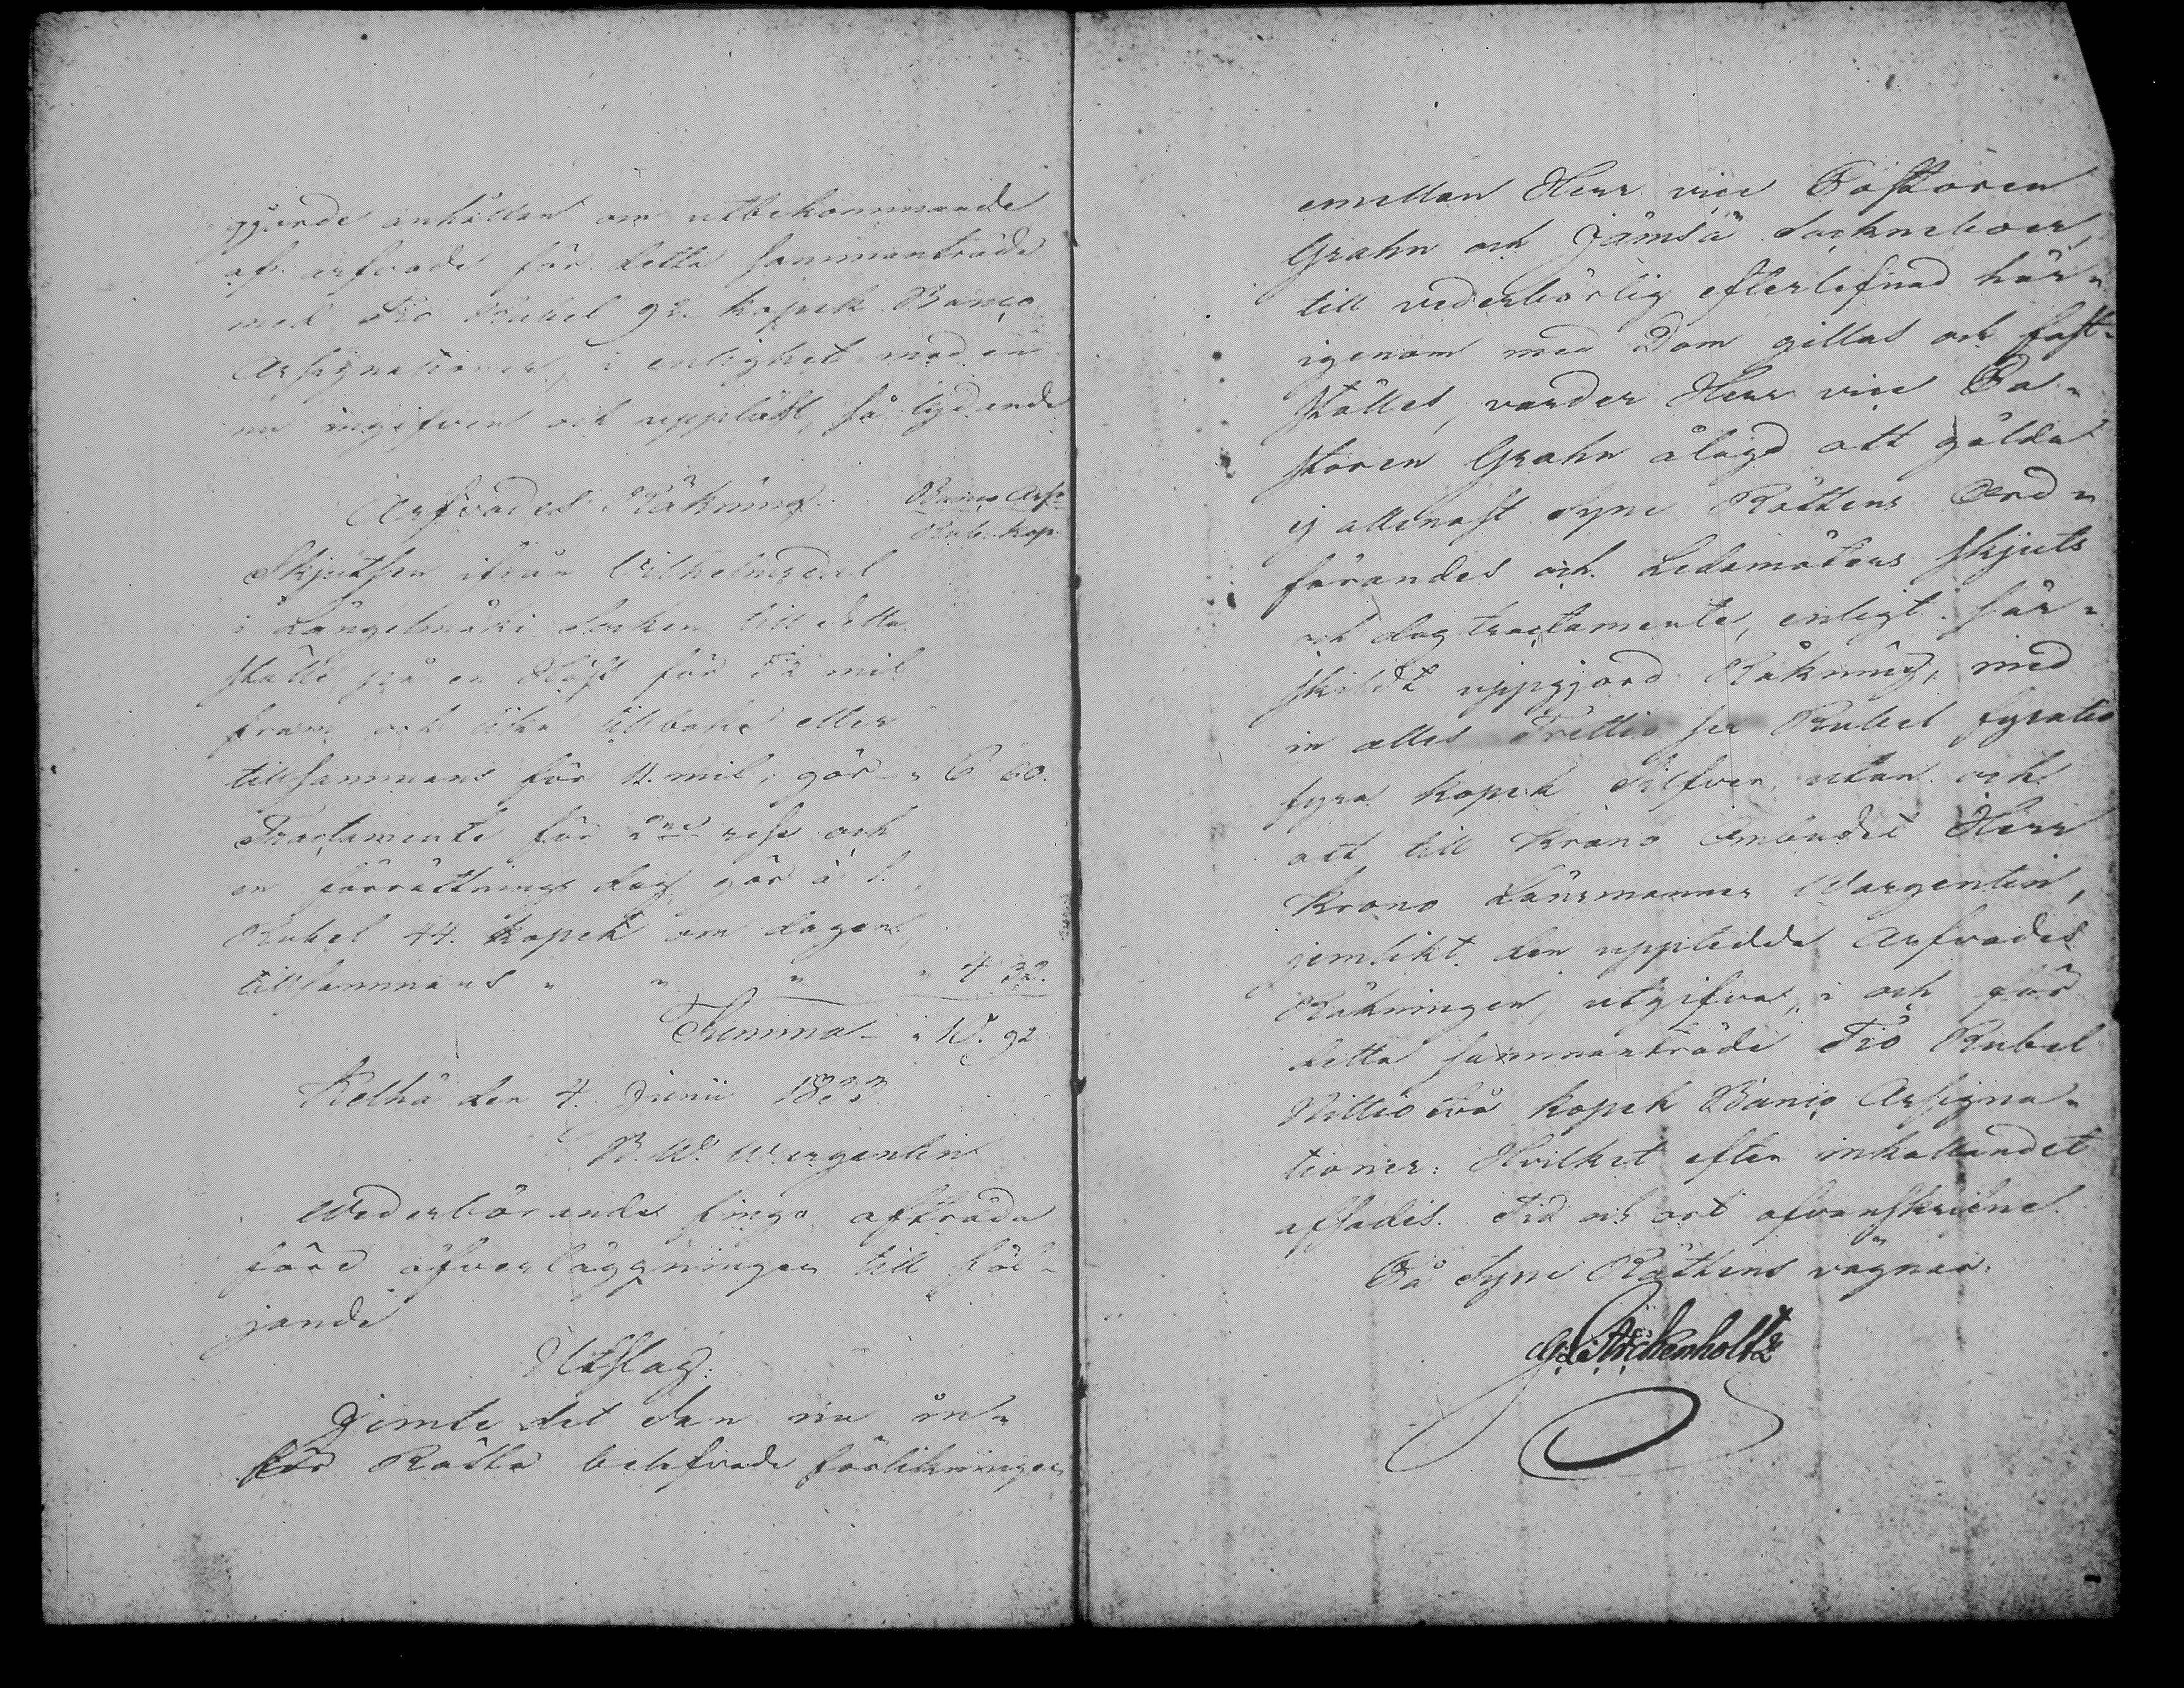 gjorde anhållan om utbekommande
af arfvode för detta sammanträde
med Tio Rubel 92. kopek Banco
Assignationer, i enlighet med en
nu ingifven och uppläst, så lydande
Arfvodes Räkning. Banco Ass:
Rub. kop.
Skjutsen ifrån Vilhelmsdal
i Längelmäki Socken till detta
ställe på en Häst för 5½ mil
fram och lika tillbaka eller
tillsammans för 11. mil, gör „ 6 60.
Tractamente för 2ne rese och
en förrättnings dag gör à 1.
Rubel 44. kopek om dagen,
tillsammans „ „ „ „ 4 32.
Summa „ 10. 92
Kelhä den 4. Junii 1833
B. W. Wargentin
Wederbörande fingo afträda
före öfverläggningen till föl-
jande
Utslag:
Jemte det den nu in-
för Rätta belefvade förlikningen
emellan Herr vice Pastoren
Grahn och Jämsä Sockneboer
till vederbörlig efterlefnad här-
igenom med Dom gillas och fast-
ställes, varder Herr vice Pa-
storen Grahn ålagd att gälda
ej allenast Syne Rättens Ord-
förandes och Ledamöters skjuts
och dagtractamente, enligt sär-
skildt uppgjord Räkning, med
in alles Trettio sex Rubel fyratio
fyra kopek Silfver, utan och
att till Krono Ombudet Herr
Krono Länsmannen Wargentin,
jemlikt den uppledde Arfvodes
Räkningen, utgifva, i och för
detta sammanträde Tio Rubel
Nittio två kopek Banco Assigna-
tioner: Hvilket efter inkallandet
afsades. Tid och ort ofvanskrifne.
På Syne Rättens vägnar.
G: L: Stichenholtz